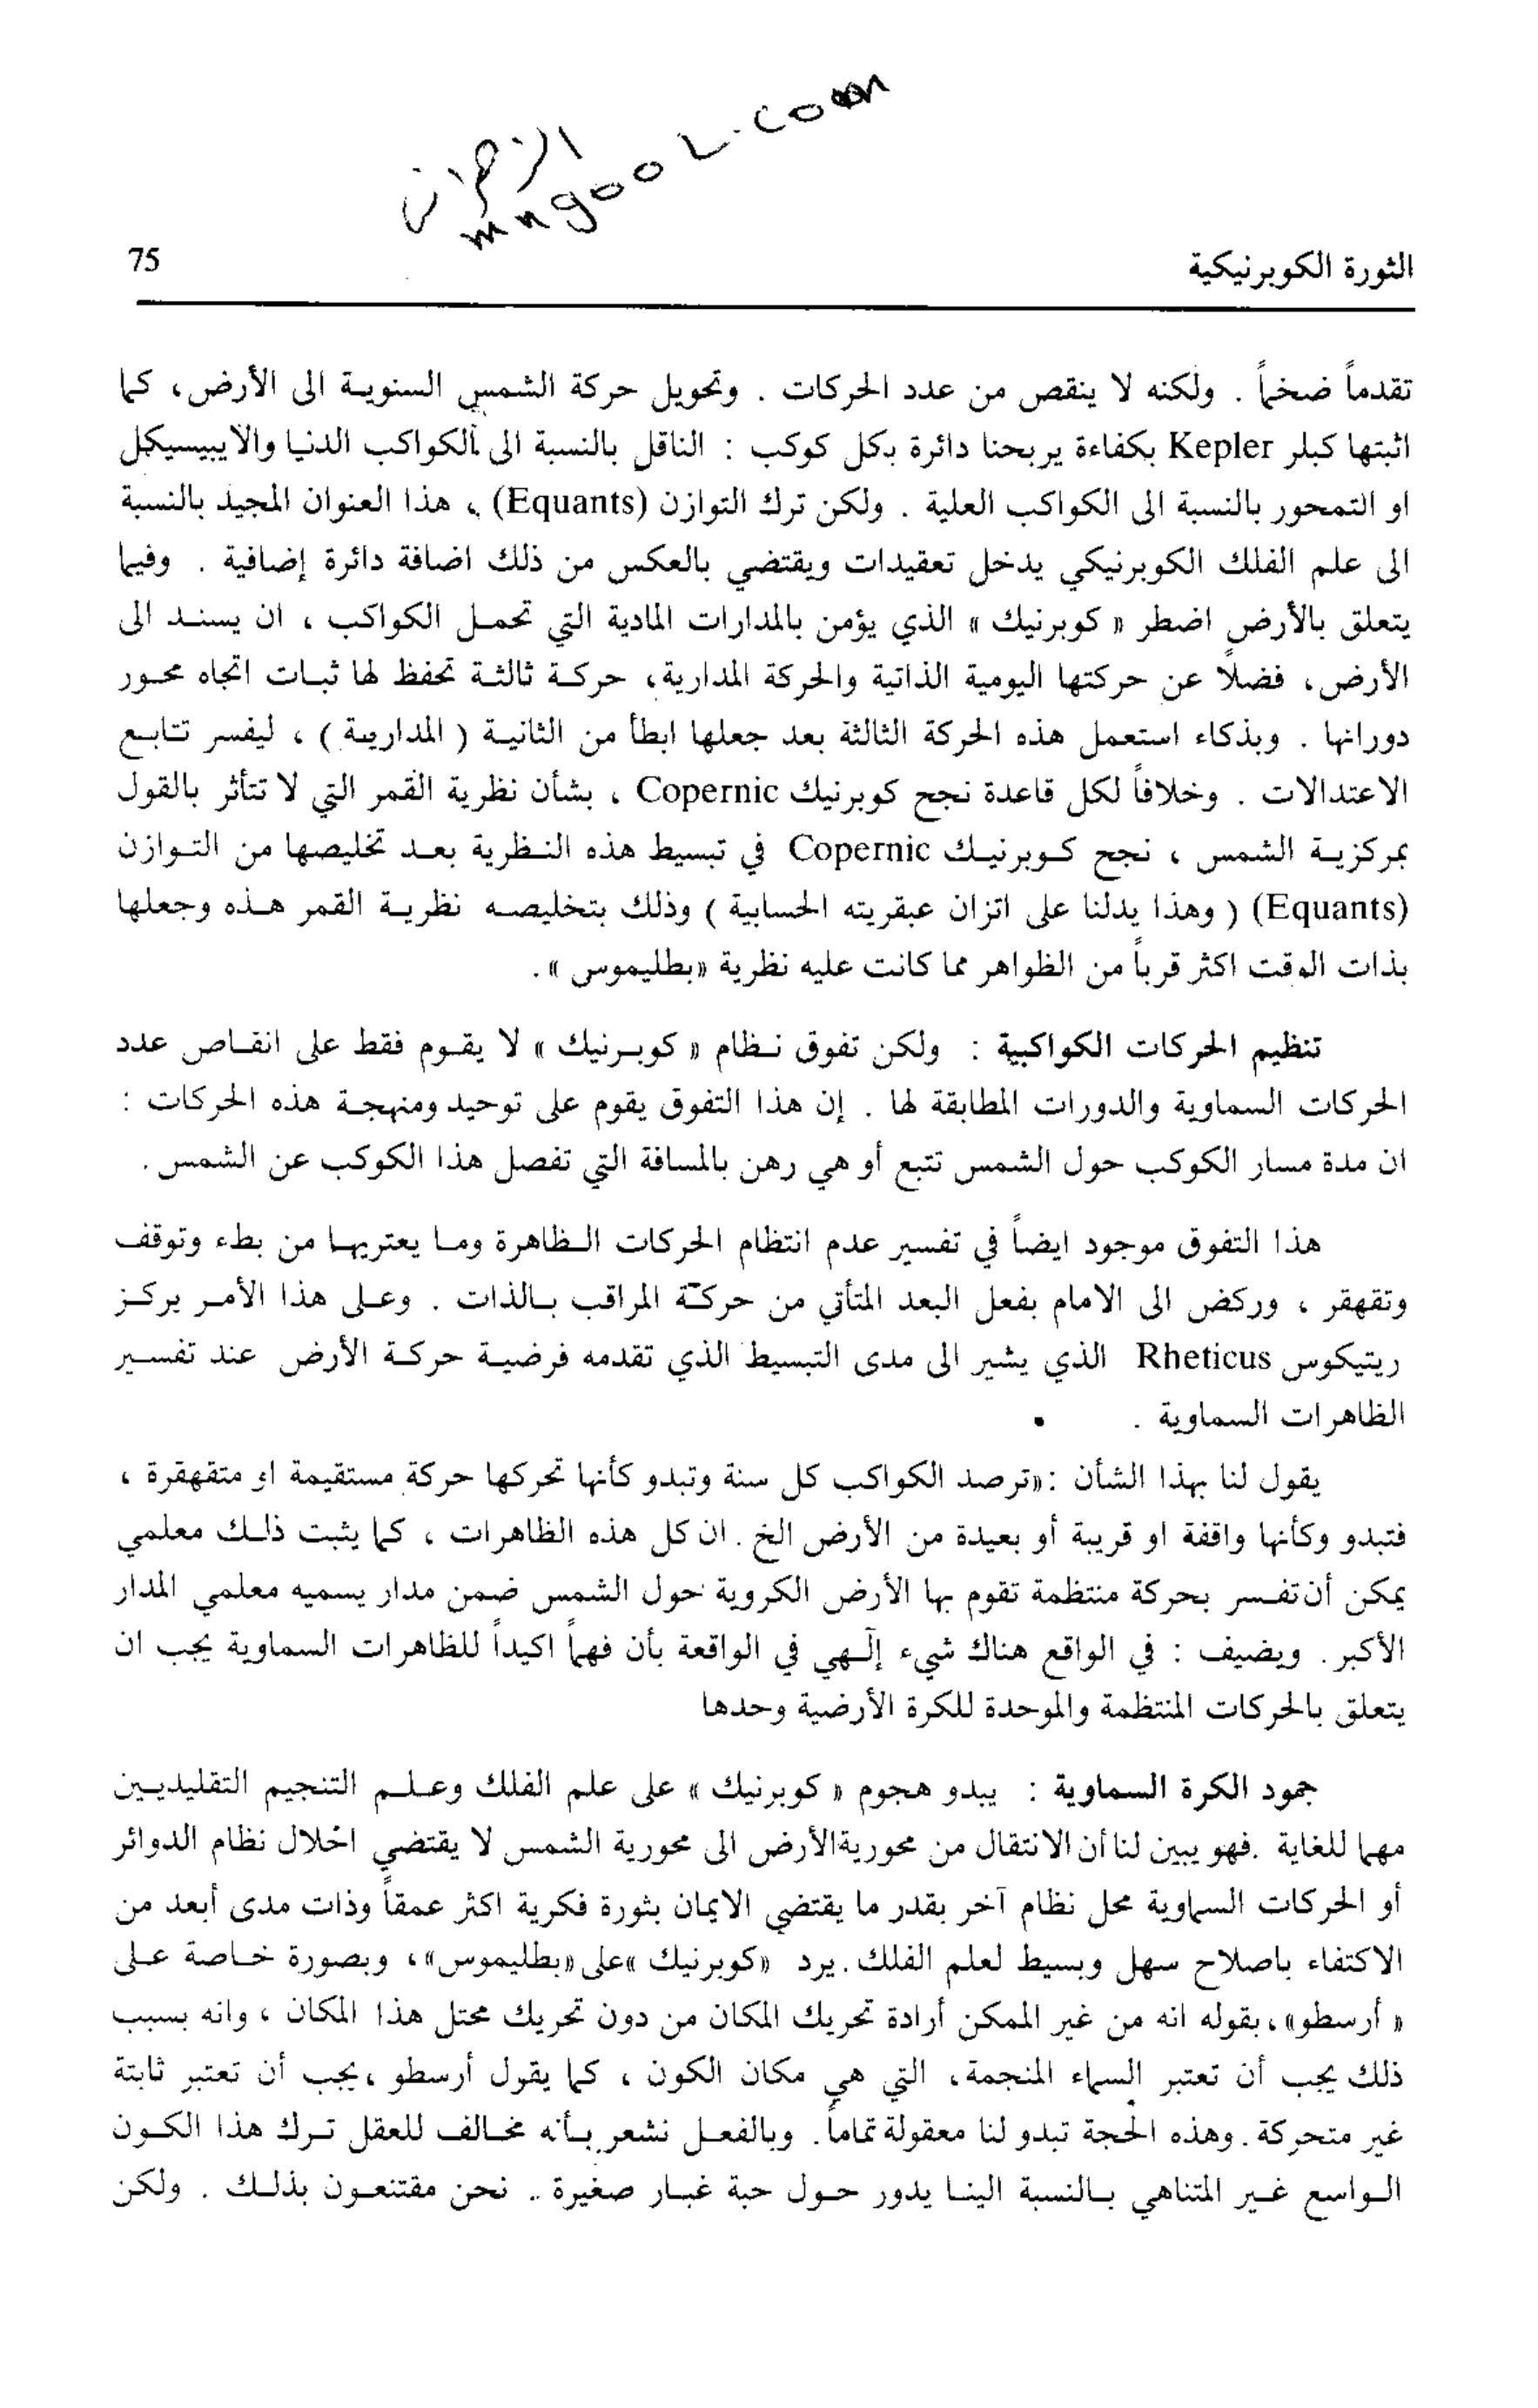 الزهران
mngool.com
الثورة الكوبرنيكية 75
تقدماً ضخماً . ولكنه لا ينقص من عدد الحركات . وتحويل حركة الشمس السنوية الى الأرض، كما
اثبتها كبلر Kepler بكفاءة يربحنا دائرة بكل كوكب : الناقل بالنسبة الى الكواكب الدنيا والابيسيكل
او التمحور بالنسبة الى الكواكب العلية . ولكن ترك التوازن (Equants) ، هذا العنوان المجيد بالنسبة
الى علم الفلك الكوبرنيكي يدخل تعقيدات ويقتضي بالعكس من ذلك اضافة دائرة إضافية . وفيما
يتعلق بالأرض اضطر « كوبرنيك » الذي يؤمن بالمدارات المادية التي تحمل الكواكب ، ان يسند الى
الأرض، فضلاً عن حركتها اليومية الذاتية والحركة المدارية، حركة ثالثة تحفظ لها ثبات اتجاه محور
دورانها . وبذكاء استعمل هذه الحركة الثالثة بعد جعلها ابطأ من الثانية ( المدارية ) ، ليفسر تتابع
الاعتدالات . وخلافاً لكل قاعدة نجح كوبرنيك Copernic ، بشأن نظرية القمر التي لا تتأثر بالقول
بمركزية الشمس ، نجح كوبرنيك Copernic في تبسيط هذه النظرية بعد تخليصها من التوازن
(Equants) ( وهذا يدلنا على اتزان عبقريته الحسابية ) وذلك بتخليصه نظرية القمر هذه وجعلها
بذات الوقت اكثر قرباً من الظواهر مما كانت عليه نظرية «بطليموس » .
تنظيم الحركات الكواكبية : ولكن تفوق نظام « كوبرنيك » لا يقوم فقط على انقاص عدد
الحركات السماوية والدورات المطابقة لها . إن هذا التفوق يقوم على توحيد ومنهجة هذه الحركات :
ان مدة مسار الكوكب حول الشمس تتبع أو هي رهن بالمسافة التي تفصل هذا الكوكب عن الشمس .
هذا التفوق موجود ايضاً في تفسير عدم انتظام الحركات الظاهرة وما يعتريها من بطء وتوقف
وتقهقر ، وركض الى الامام بفعل البعد المتأتي من حركة المراقب بالذات . وعلى هذا الأمر يركز
ريتيكوس Rheticus الذي يشير الى مدى التبسيط الذي تقدمه فرضية حركة الأرض عند تفسير
الظاهرات السماوية .
يقول لنا بهذا الشأن :«ترصد الكواكب كل سنة وتبدو كأنها تحركها حركة مستقيمة او متقهقرة ،
فتبدو وكأنها واقفة او قريبة أو بعيدة من الأرض الخ . ان كل هذه الظاهرات ، كما يثبت ذلك معلمي
يمكن أن تفسر بحركة منتظمة تقوم بها الأرض الكروية حول الشمس ضمن مدار يسميه معلمي المدار
الأكبر . ويضيف : في الواقع هناك شيء إلهي في الواقعة بأن فهماً اكيداً للظاهرات السماوية يجب ان
يتعلق بالحركات المنتظمة والموحدة للكرة الأرضية وحدها
جمود الكرة السماوية : يبدو هجوم « كوبرنيك » على علم الفلك وعلم التنجيم التقليديين
مهما للغاية .فهو يبين لنا أن الانتقال من محورية الأرض الى محورية الشمس لا يقتضي احلال نظام الدوائر
أو الحركات السماوية محل نظام آخر بقدر ما يقتضي الايمان بثورة فكرية اكثر عمقاً وذات مدى أبعد من
الاكتفاء باصلاح سهل وبسيط لعلم الفلك . يرد «كوبرنيك »على «بطليموس»، وبصورة خاصة على
« أرسطو»،بقوله انه من غير الممكن أرادة تحريك المكان من دون تحريك محتل هذا المكان ، وانه بسبب
ذلك يجب أن تعتبر السماء المنجمة، التي هي مكان الكون ، كما يقول أرسطو ،يجب أن تعتبر ثابتة
غير متحركة . وهذه الحجة تبدو لنا معقولة تماماً . وبالفعل نشعر بأنه مخالف للعقل ترك هذا الكون
الواسع غير المتناهي بالنسبة الينا يدور حول حبة غبار صغيرة .. نحن مقتنعون بذلك . ولكن